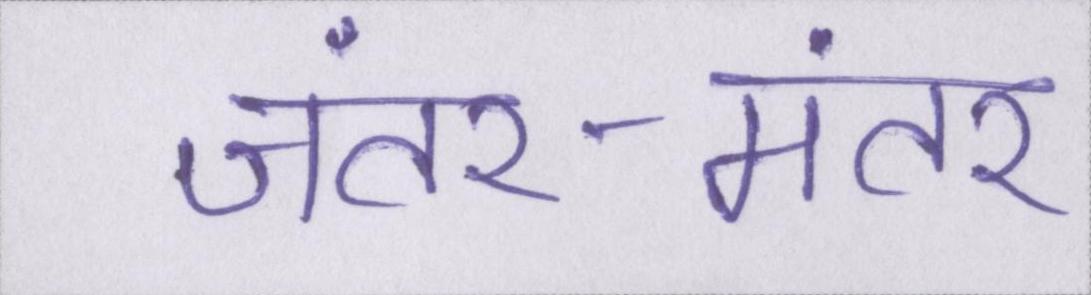 जंतर-मंतर